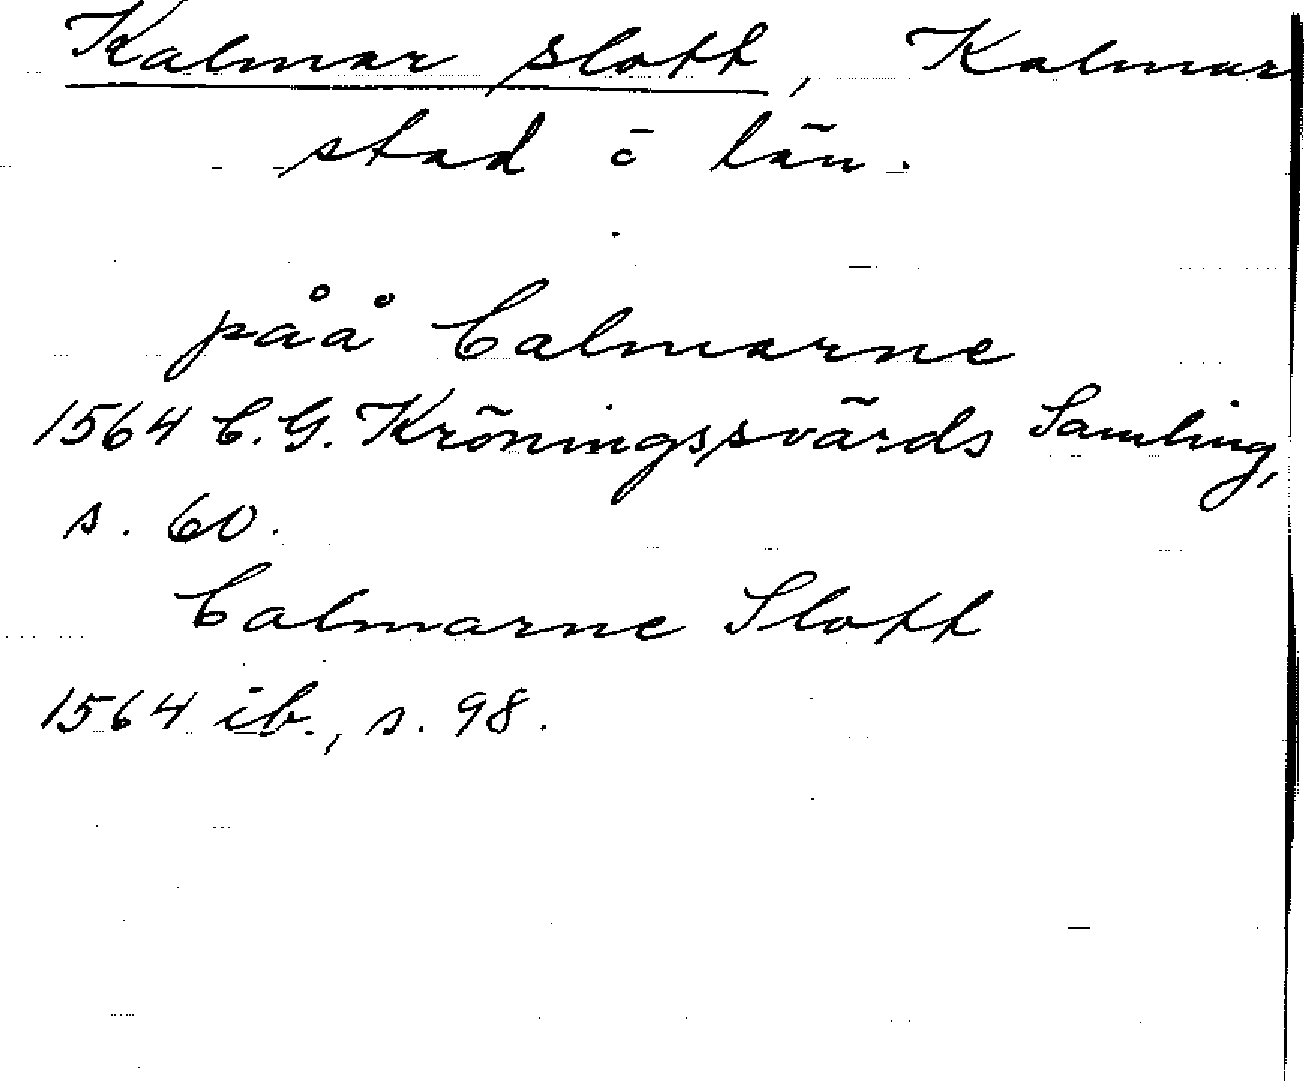 Kalmar slott, Kalmar
stad o län.
påå Calmarne
1564 C. G. Kröningssvärds Samling,
s. 60.
Calmarne Slott
1564 ib., s. 98.